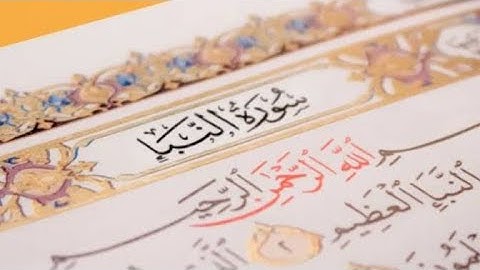 سورة النبإ
بسم الله الرحمن الرحيم
النبإ العظيم ٢